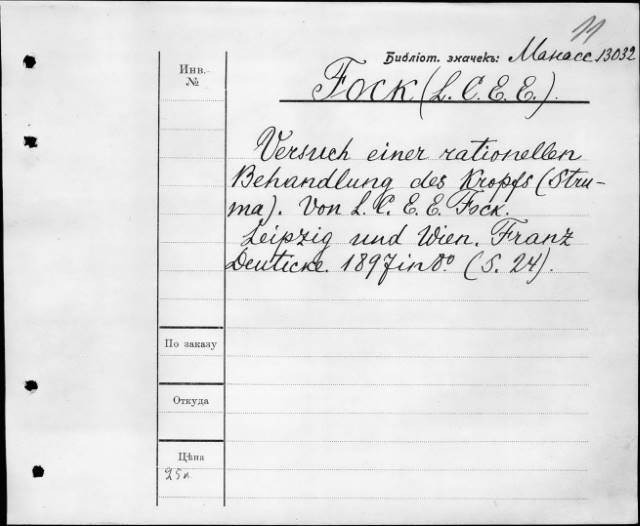 11
Библіот. значекъ: Манасс. 13032
Инв.
№
Fock (L. C. E. E.).
Versuch einer rationellen
Behandlung des Kropfs (Stru-
ma). Von L. C. E. E. Fock.
Leipzig und Wien. Franz
Deuticke. 1897 in 8º (S. 24).
По заказу
Откуда
Цѣна
25к